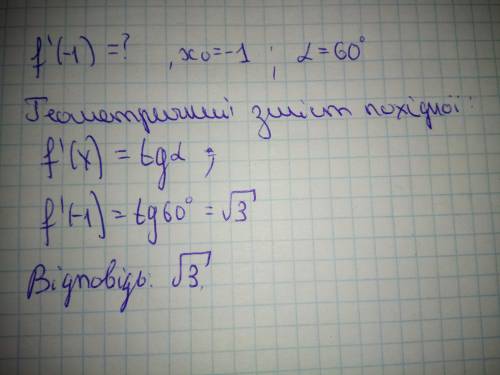 f'(-1) = ? , x₀ = -1 ; α = 60°
Геометричний зміст похідної:
f'(x) = tgα ;
f'(-1) = tg60° = √3
Відповідь: √3.